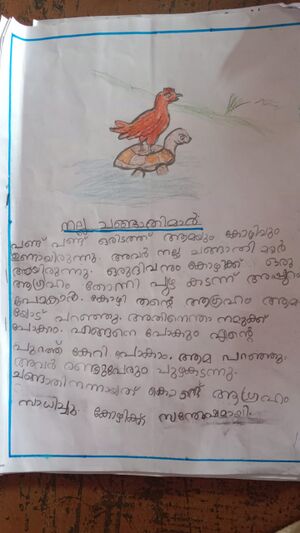 നല്ല ചങ്ങാതിമാർ
പണ്ട് പണ്ട് ഒരിടത്ത് ആമയും കോഴിയും
ഉണ്ടായിരുന്നു. അവർ നല്ല ചങ്ങാതി മാർ
ആയിരുന്നു. ഒരുദിവസം കോഴിക്ക് ഒരു
ആഗ്രഹം തോന്നി പുഴ കടന്ന് അപ്പുറം
പോകാൻ. കോഴി തന്റെ ആഗ്രഹം ആമ
യോട് പറഞ്ഞു. അതിനെന്താ നമുക്ക്
പോകാം. എങ്ങനെ പോകും എന്റെ
പുറത്ത് കേറി പോകാം. ആമ പറഞ്ഞു.
അവർ രണ്ടുപേരും പുഴകടന്നു.
ചങ്ങാതി നന്നായത് കൊണ്ട് ആഗ്രഹം
സാധിച്ചു. കോഴിക്കു സന്തോഷമായി.